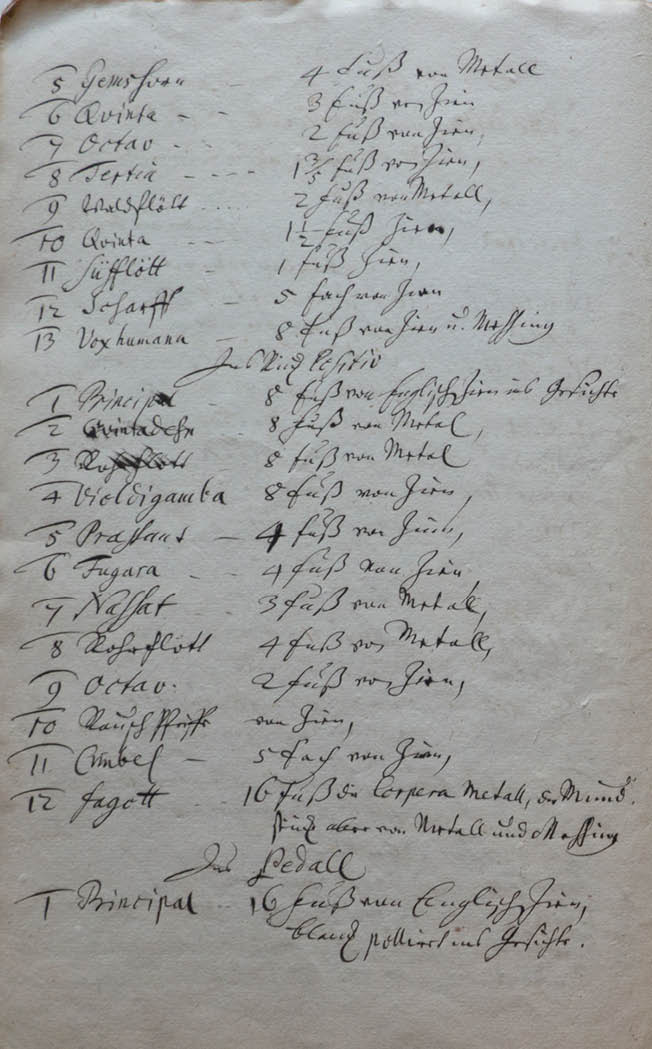 5 Gemshorn - 4 Fuß von Metall
6 Qvinta - - 3 Fuß von Zien
7 Octav - - 2 Fuß von Zien,
8 Tertia - - - - 1 3/5 Fuß von Zien,
9 Waldflött .... 2 Fuß von Metall,
10 Qvinta --- 1 1/2 Fuß Zien,
11 Süfflött - 1 Fuß Zien,
12 Scharff - 5 fach von Zien
13 Vox humana - 8 Fuß von Zien u. Meßing
Ins Rück Positiv
1 Principal - 8 Fuß von Englisch Zien ins Gesichte
2 Qvintadehn 8 Fuß von Metal,
3 Rohrflött 8 Fuß von Metal
4 Violdigamba 8 Fuß von Zien,
5 Præstant - 4 Fuß von Zien,
6 Fugara - - 4 Fuß von Zien
7 Nassat - 3 Fuß von Metal,
8 Rohrflött 4 Fuß von Metall,
9 Octav. 2 Fuß von Zien,
10 Rausch Pfeiffe von Zien,
11 Cimbel - 5 fach von Zien,
12 Fagott .. 16 Fuß die Corpera Metall, die Mund-
stück aber von Metall und Meßing
Ins Pedall
1 Principal .. 16 Fuß von Englisch Zien,
blanck polliert ins Gesichte.